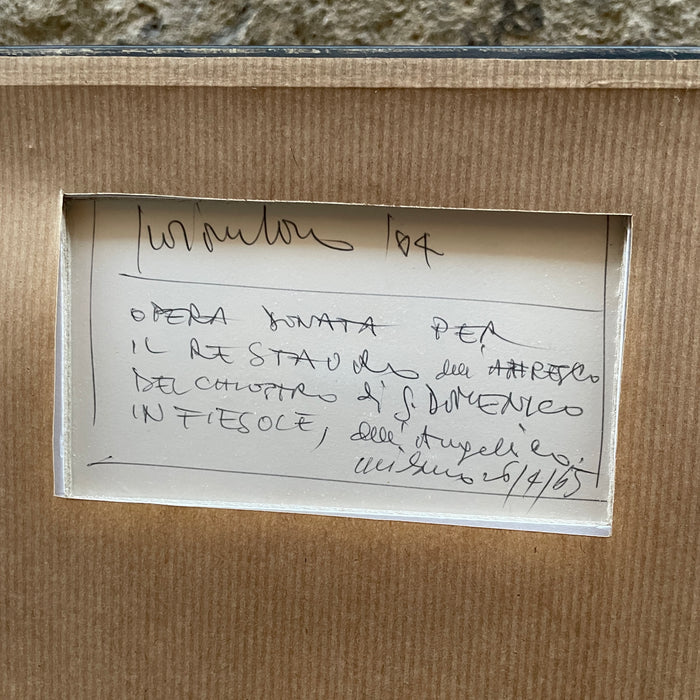 OPERA DONATA PER
IL RESTAURO dell'AFFRESCO
DEL CHIOSTRO di S. DOMENICO
IN FIESOLE, dell'Angelico.
milano 26/4/65